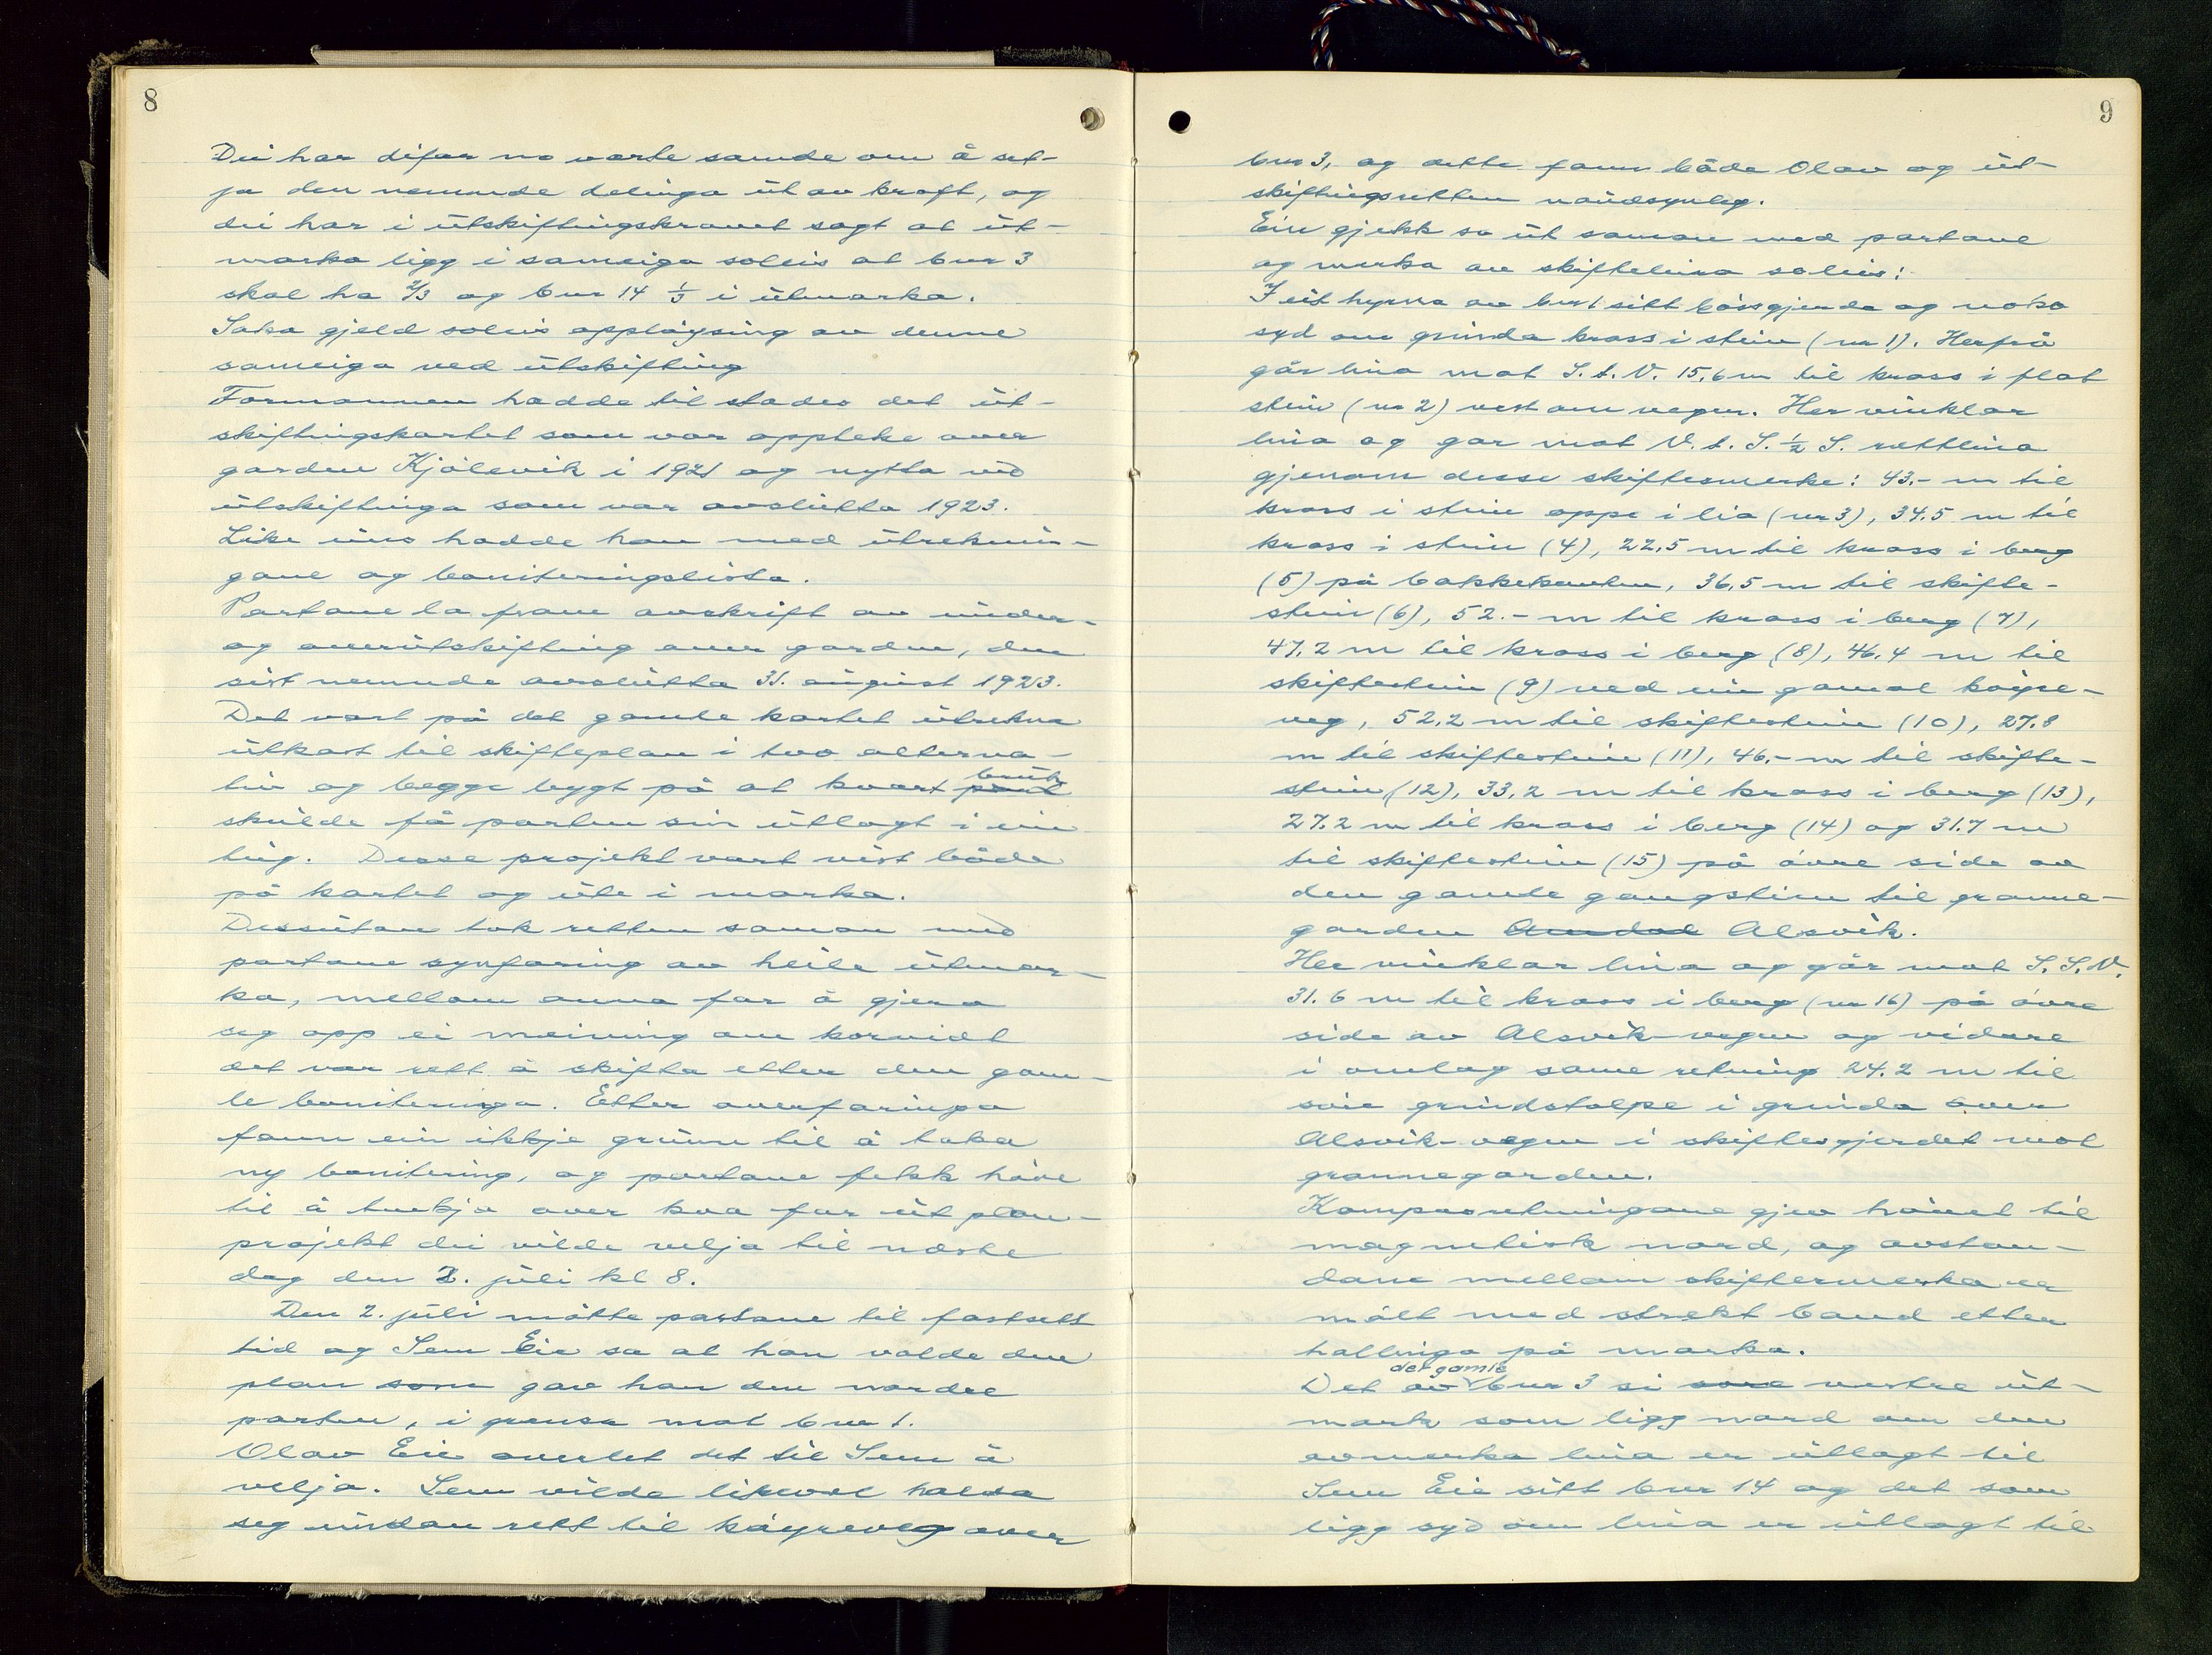 8
Dei har difor no vorte samde om å set-
ja den nemnde delinga ut av kraft, og
dei har i utskiftingskravet sagt at ut-
marka ligg i sameiga soleis at bnr 3
skal ha 2/3 og bnr 14 1/3 i utmarka.
Saka gjeld soleis oppløysing av denne
sameiga ved utskifting
Formannen hadde til stades det ut-
skiftingskartet som var oppteke over
garden Kjølevik i 1921 og nytta ved
utskiftinga som var avslutta 1923.
Like eins hadde han med utreknin-
gane og boniteringslista.
Partane la fram avskrift av under-
og overutskifting over garden, den
sist nemnde avslutta 31. august 1923.
Det vart på det gamle kartet utrekna
utkast til skifteplan i tvo alterna-
tiv og begge bygt på at kvart bruk
skulde få parten sin utlagt i ein
teig. Desse projekt vart vist både
på kartet og ute i marka.
Dessutan tok retten saman med
partane synfaring av heile utmar-
ka, mellom anna for å gjera
seg opp ei meining om korvidt
det var rett å skifta etter den gam-
le boniteringa. Etter overfaringa
fann ein ikkje grunn til å taka
ny bonitering, og partane fekk høve
til å tenkja over kva for eit plan-
projekt dei vilde velja til næste
dag den 2. juli kl 8.
Den 2. juli møtte partane til fastsett
tid og Sem Eie sa at han valde den
plan som gav han den nordre
parten, i grensa mot bnr 1.
Olav Eie overlet det til Sem å
velja. Sem vilde likevel halda
seg undan rett til køyreveg over
9
bnr 3, og dette fann både Olav og ut-
skiftingsretten naudsynleg.
Ein gjekk so ut saman med partane
og merka av skiftelina soleis:
I eit hyrna av bnr 1 sitt bøssgjerde og noko
syd om grinda kross i stein (nr 1). Herfrå
går lina mot S.t.V. 15,6 m til kross i flat
stein (nr 2) vest om vegen. Her vinklar
lina og går mot V.t.S. 1/2 S. rettlina
gjenom desse skiftesmerke: 43.- m til
kross i stein oppe i lia (nr 3), 34.5 m til
kross i stein (4), 22,5 m til kross i berg
(5) på bakkekanten, 36,5 m til skifte-
stein (6), 52.- m til kross i berg (7),
47.2 m til kross i berg (8), 46.4 m til
skiftestein (9) ved ein gamal køyre-
veg, 52,2 m til skiftestein (10), 27.8
m til skiftestein (11), 46.- m til skifte-
stein (12), 33,2 m til kross i berg (13),
27.2 m til kross i berg (14) og 31.7 m
til skiftestein (15) på øvre side av
den gamle gangstien til granne-
garden Alsvik.
Her vinklar lina og går mot S.S.V.
31.6 m til kross i berg (nr 16) på øvre
side av Alsvik-vegen og vidare
i omlag same retning 24.2 m til
søre grindstolpe i grinda over
Alsvik-vegen i skiftesgjerdet mot
grannegarden.
Kompasretningane gjev tråvet til
magnetisk nord, og avstan-
dane mellom skiftesmerka er
målt med strekt band etter
hallinga på marka.
Det av det gamle bnr 3 si vestre ut-
mark som ligg nord om den
avmerka lina er utlagt til
Sem Eie sitt bnr 14 og det som
ligg syd om lina er utlagt til